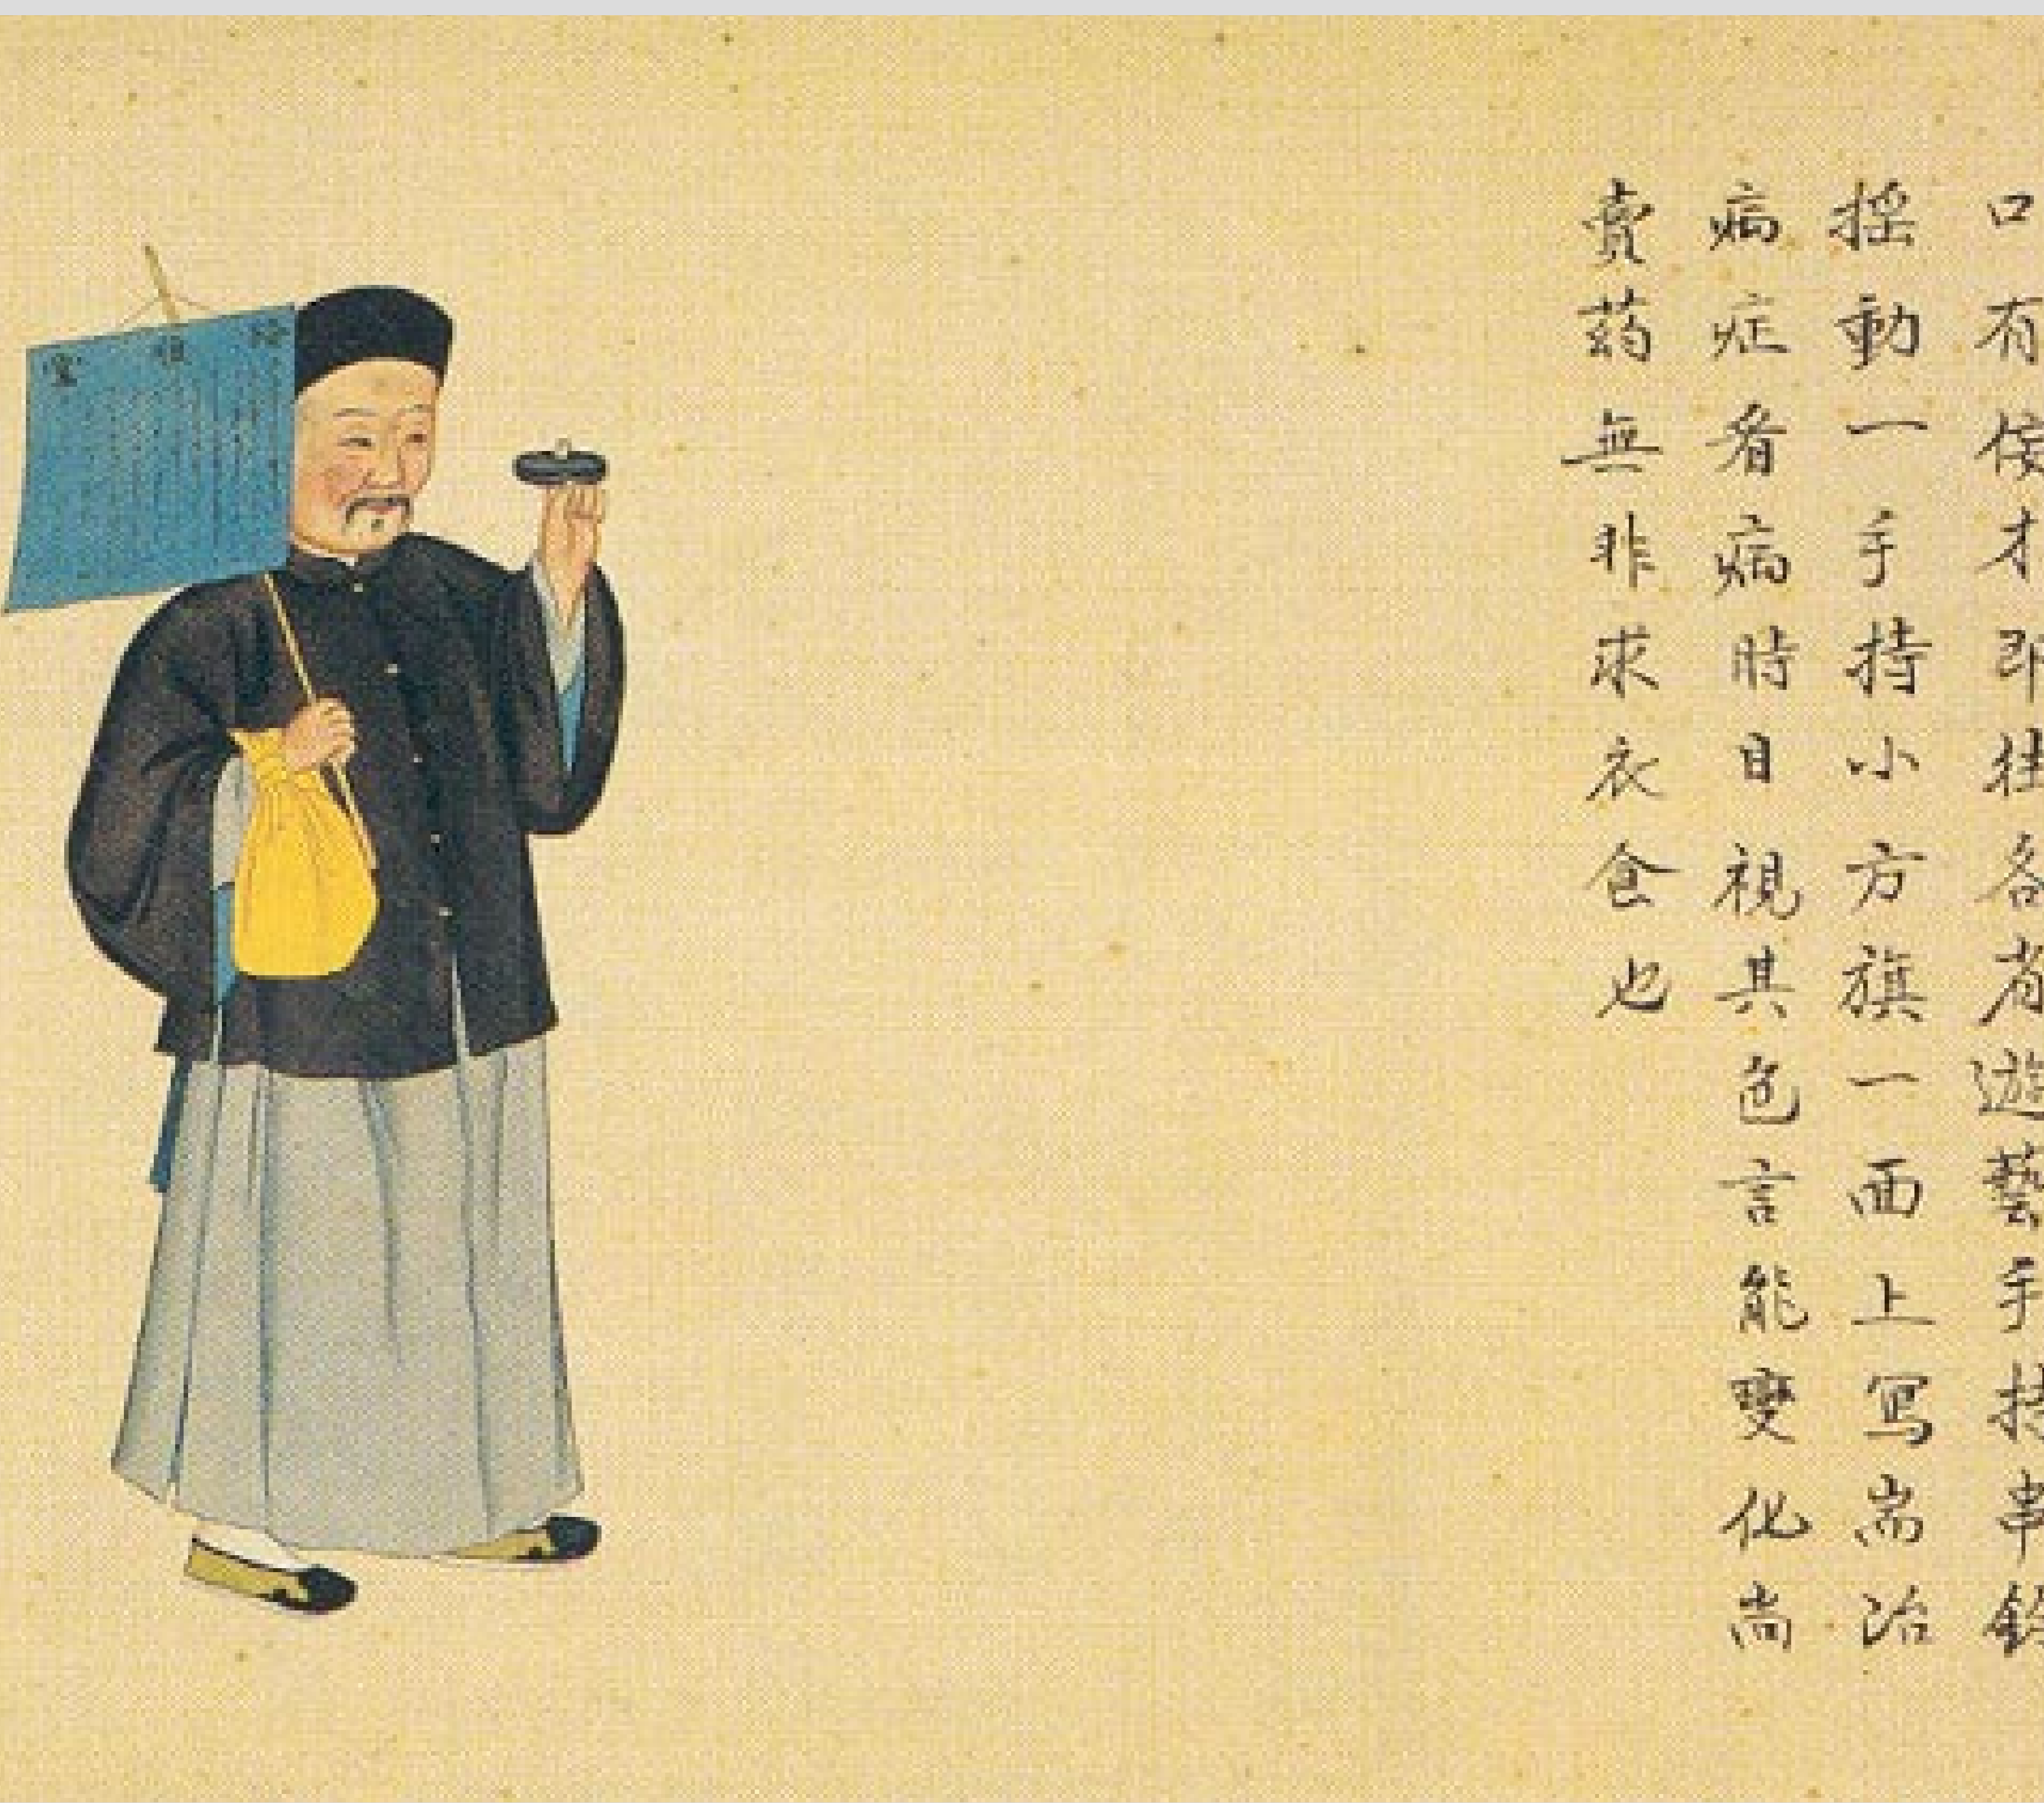 口有佞才即往各者遊藝手持串鈴
摇動一手持小方旗一面上冩耑治
病症看病時目視其色言能變化尚
賣葯無非求衣食也